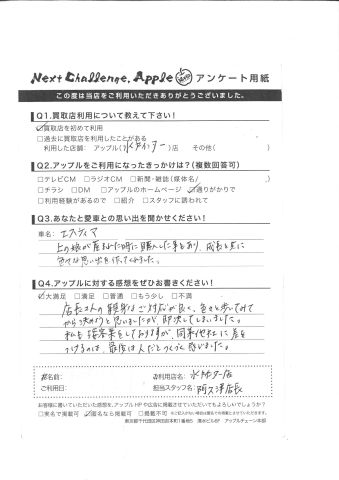 Next Challenge. Apple アンケート用紙
この度は当店をご利用いただきありがとうございました。
Q1.買取店利用について教えて下さい!
☑買取店を初めて利用
□過去に買取店を利用したことがある
利用した店舗: アップル( 水戸インター )店 その他( )
Q2.アップルをご利用になったきっかけは?(複数回答可)
□テレビCM □ラジオCM □新聞・雑誌(媒体名/ )
□チラシ □DM □アップルのホームページ ☑通りがかりで
□利用経験があるので □紹介 □スタッフに誘われて
Q3.あなたと愛車との思い出を聞かせください!
車名: エスティマ
上の娘が産まれた時に購入した車であり、成長と共に
色々な思い出を作ってくれました。
Q4.アップルに対する感想をぜひお書きください!
☑大満足 □満足 □普通 □もう少し □不満
店長さんの親身なご対応が良く、色々と歩いてみて
から決めようと思いましたが即決してしまいました。
私も接客業をしておりますが、同業他社に差を
つけるのは、最後は人だとつくづく感じました。
お名前: ご利用店名: 水戸インター店
ご利用日: 担当スタッフ名: 阿久津店長
お客様に書いていただいた感想を、アップルHPや広告に掲載させていただいてもよろしいでしょうか?
□実名で掲載可 ☑匿名なら掲載可 □掲載不可
東京都千代田区神田錦町 アップルチェーン本部